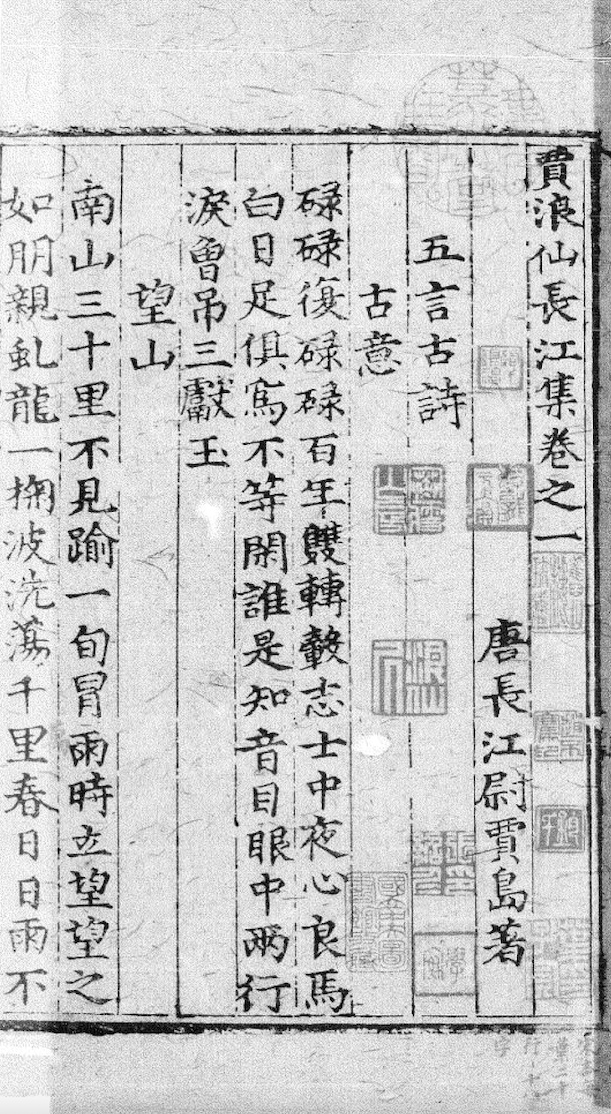 賈浪仙長江集卷之一
唐長江尉賈島著
五言古詩
古意
碌碌復碌碌百年雙轉轂志士中夜心良馬
白日足俱爲不等閑誰是知音目眼中兩行
淚曾吊三獻玉
望山
南山三十里不見踰一旬冒雨時立望望之
如朋親虬龍一掬波洗蕩千里春日日雨不